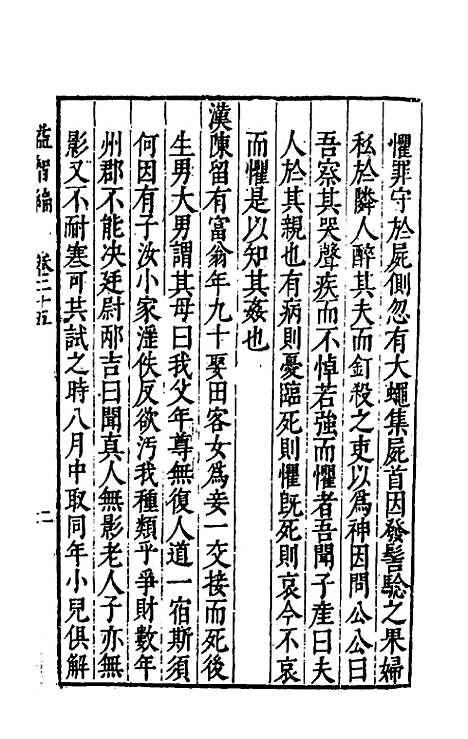 懼罪守於屍側忽有大蠅集屍首因發髻驗之果婦
私於隣人醉其夫而釘殺之吏以為神因問公公曰
吾察其哭聲疾而不悼若強而懼者吾聞子產曰夫
人於其親也有病則憂臨死則懼既死則哀今不哀
而懼是以知其姦也
漢陳留有富翁年九十娶田客女為妾一交接而死後
生男大男謂其母曰我父年尊無復人道一宿斯須
何因有子汝小家淫佚反欲汚我種類乎爭財數年
州郡不能决廷尉邴吉曰聞真人無影老人子亦無
影又不耐寒可共試之時八月中取同年小兒俱解
益智編 卷二十五 二